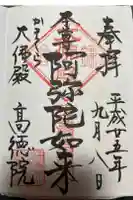 奉拝
平成廿五年
九月八
本尊
阿弥陀如来
かまくら
大佛殿
高徳院